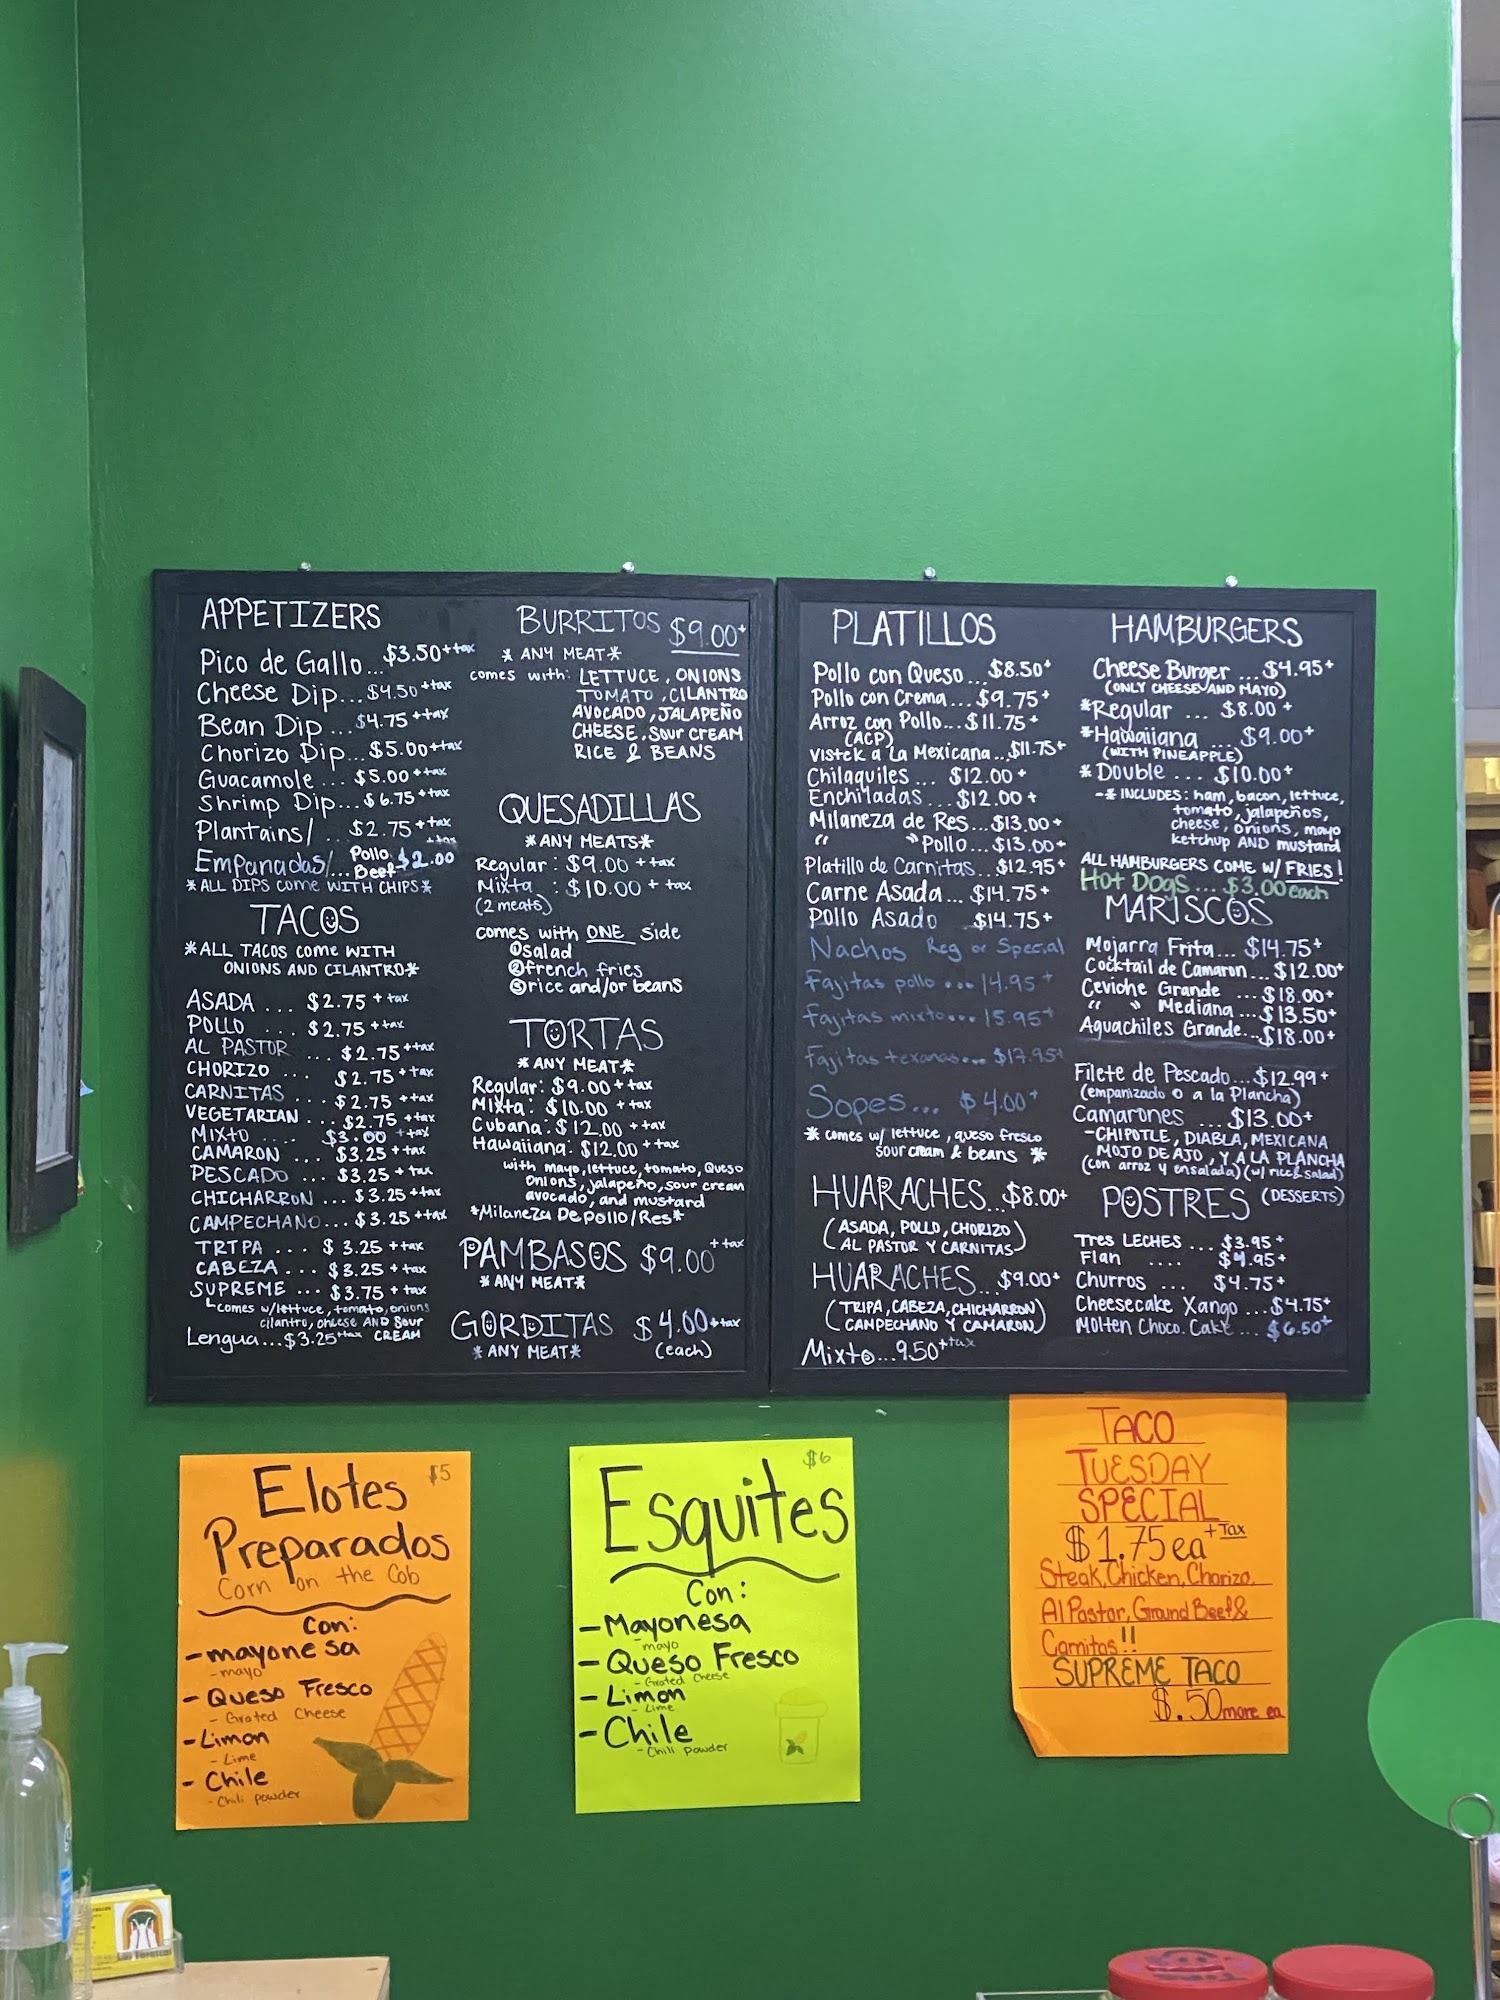 APPETIZERS
Pico de Gallo... $3.50++tax
Cheese Dip... $4.50++tax
Bean Dip... $4.75++tax
Chorizo Dip... $5.00++tax
Guacamole ... $5.00++tax
Shrimp Dip... $6.75++tax
Plantains/ ... $2.75++tax
Empanadas/... Pollo Beef $2.00 ++tax
*ALL DIPS come WITH CHIPS*
TACOS
*ALL TACOS come WITH
ONIONS AND CILANTRO*
ASADA ... $2.75 + tax
POLLO ... $2.75 ++tax
AL PASTOR ... $2.75 ++tax
CHORIZO ... $2.75 ++tax
CARNITAS ... $2.75 ++tax
VEGETARIAN ... $2.75 ++tax
MIXTO .... $3.00 ++tax
CAMARON ... $3.25 ++tax
PESCADO ... $3.25 + tax
CHICHARRON ... $3.25 ++tax
CAMPECHANO... $3.25 ++tax
TRIPA ... $3.25 ++tax
CABEZA ... $3.25 ++tax
SUPREME ... $3.75 + tax
comes w/lettuce, tomato, onions
cilantro, cheese AND sour
CREAM
Lengua...$3.25++tax
BURRITOS $9.00+
* ANY MEAT*
comes with: LETTUCE, ONIONS
TOMATO, CILANTRO
AVOCADO, JALAPEÑO
CHEESE, SOUR CREAM
RICE & BEANS
QUESADILLAS
*ANY MEATS*
Regular: $9.00 ++tax
Mixta : $10.00 + + tax
(2 meats)
comes with ONE side
①salad
②french fries
③rice and/or beans
TORTAS
*ANY MEAT*
Regular: $9.00 ++tax
Mixta: $10.00 ++tax
Cubana: $12.00 ++tax
Hawaiiana: $12.00 ++tax
with mayo, lettuce, tomato, Queso
onions, jalapeño, sour cream
avocado, and mustard
*Milaneza De Pollo/Res*
PAMBASOS $9.00 ++tax
*ANY MEAT*
GORDITAS $4.00++tax
*ANY MEAT* (each)
PLATILLOS
Pollo con Queso...$8.50+
Pollo con Crema...$9.75+
Arroz con Pollo...$11.75+
(ACP)
Vistek a La Mexicana...$11.75+
Chilaquiles... $12.00+
Enchiladas... $12.00 +
Milaneza de Res...$13.00+
" " Pollo...$13.00+
Platillo de Carnitas...$12.95+
Carne Asada... $14.75+
Pollo Asado $14.75+
Nachos Reg or Special
Fajitas pollo ... 14.95+
Fajitas mixto.... 15.95+
Fajitas texanas... $17.95+
Sopes... $4.00+
* comes w/ lettuce, queso fresco
sour cream & beans *
HUARACHES...$8.00+
(ASADA, POLLO, CHORIZO
AL PASTOR Y CARNITAS)
HUARACHES...$9.00+
(TRIPA, CABEZA, CHICHARRON
CAMPECHANO Y CAMARON)
Mixto...9.50++tax
HAMBURGERS
Cheese Burger ...$4.95+
(ONLY CHEESE AND MAYO)
*Regular ... $8.00 +
*Hawaiiana ... $9.00+
(WITH PINEAPPLE)
* Double ... $10.00+
-* INCLUDES: ham, bacon, lettuce,
tomato, jalapeños,
cheese, onions, mayo
ketchup AND mustard
ALL HAMBURGERS COME W/ FRIES!
HOT DOGS ... $3.00 each
MARISCOS
Mojarra Frita... $14.75+
Cocktail de Camaron... $12.00+
Ceviche Grande ...$18.00+
" " Mediana ...$13.50+
Aguachiles Grande...$18.00+
Filete de Pescado...$12.99+
(empanizado o a la Plancha)
Camarones ...$13.00+
-CHIPOTLE, DIABLA, MEXICANA
MOJO DE AJO, Y A LA PLANCHA
(con arroz y ensalada)(w/ rice & salad)
POSTRES (DESSERTS)
Tres LECHES ... $3.95+
Flan .... $4.95+
Churros ... $4.75+
Cheesecake Xango ...$4.75+
Molten Choco. Cake ... $6.50+
Elotes $5
Preparados
Corn on the Cob
Con:
- mayonesa
- mayo
- Queso Fresco
- Grated Cheese
- Limon
- Lime
- Chile
- Chili powder
$6
Esquites
Con:
- Mayonesa
- mayo
- Queso Fresco
- Grated Cheese
- Limon
- Lime
- Chile
- Chili powder
TACO
TUESDAY
SPECIAL
$1.75 ea +Tax
Steak, Chicken, Chorizo,
Al Pastor, Ground Beef &
Carnitas!!
SUPREME TACO
$.50 more ea